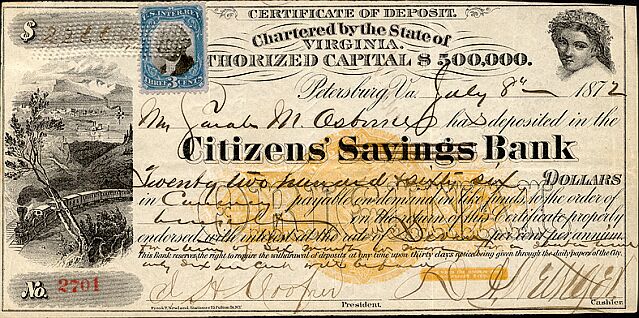 CERTIFICATE OF DEPOSIT.
$
U.S. INTER. REV.
THREE 3 CENTS
Chartered by the State of
VIRGINIA.
THORIZED CAPITAL $500,000.
Petersburg, Va. July 8th 1872
Mrs Sarah M. Osborne has deposited in the
Citizens' Savings Bank
Twenty two hundred & sixty six DOLLARS
in Currency payable on demand in like funds, to the order of
in the return of this Certificate properly
endorsed with interest at the rate of per cent per annum.
This Bank reserves the right to require the withdrawal of deposits at any time upon thirty days notice being given through the daily papers of the City.
only Six per Cent will be
No. 2701
President.
Cashier.